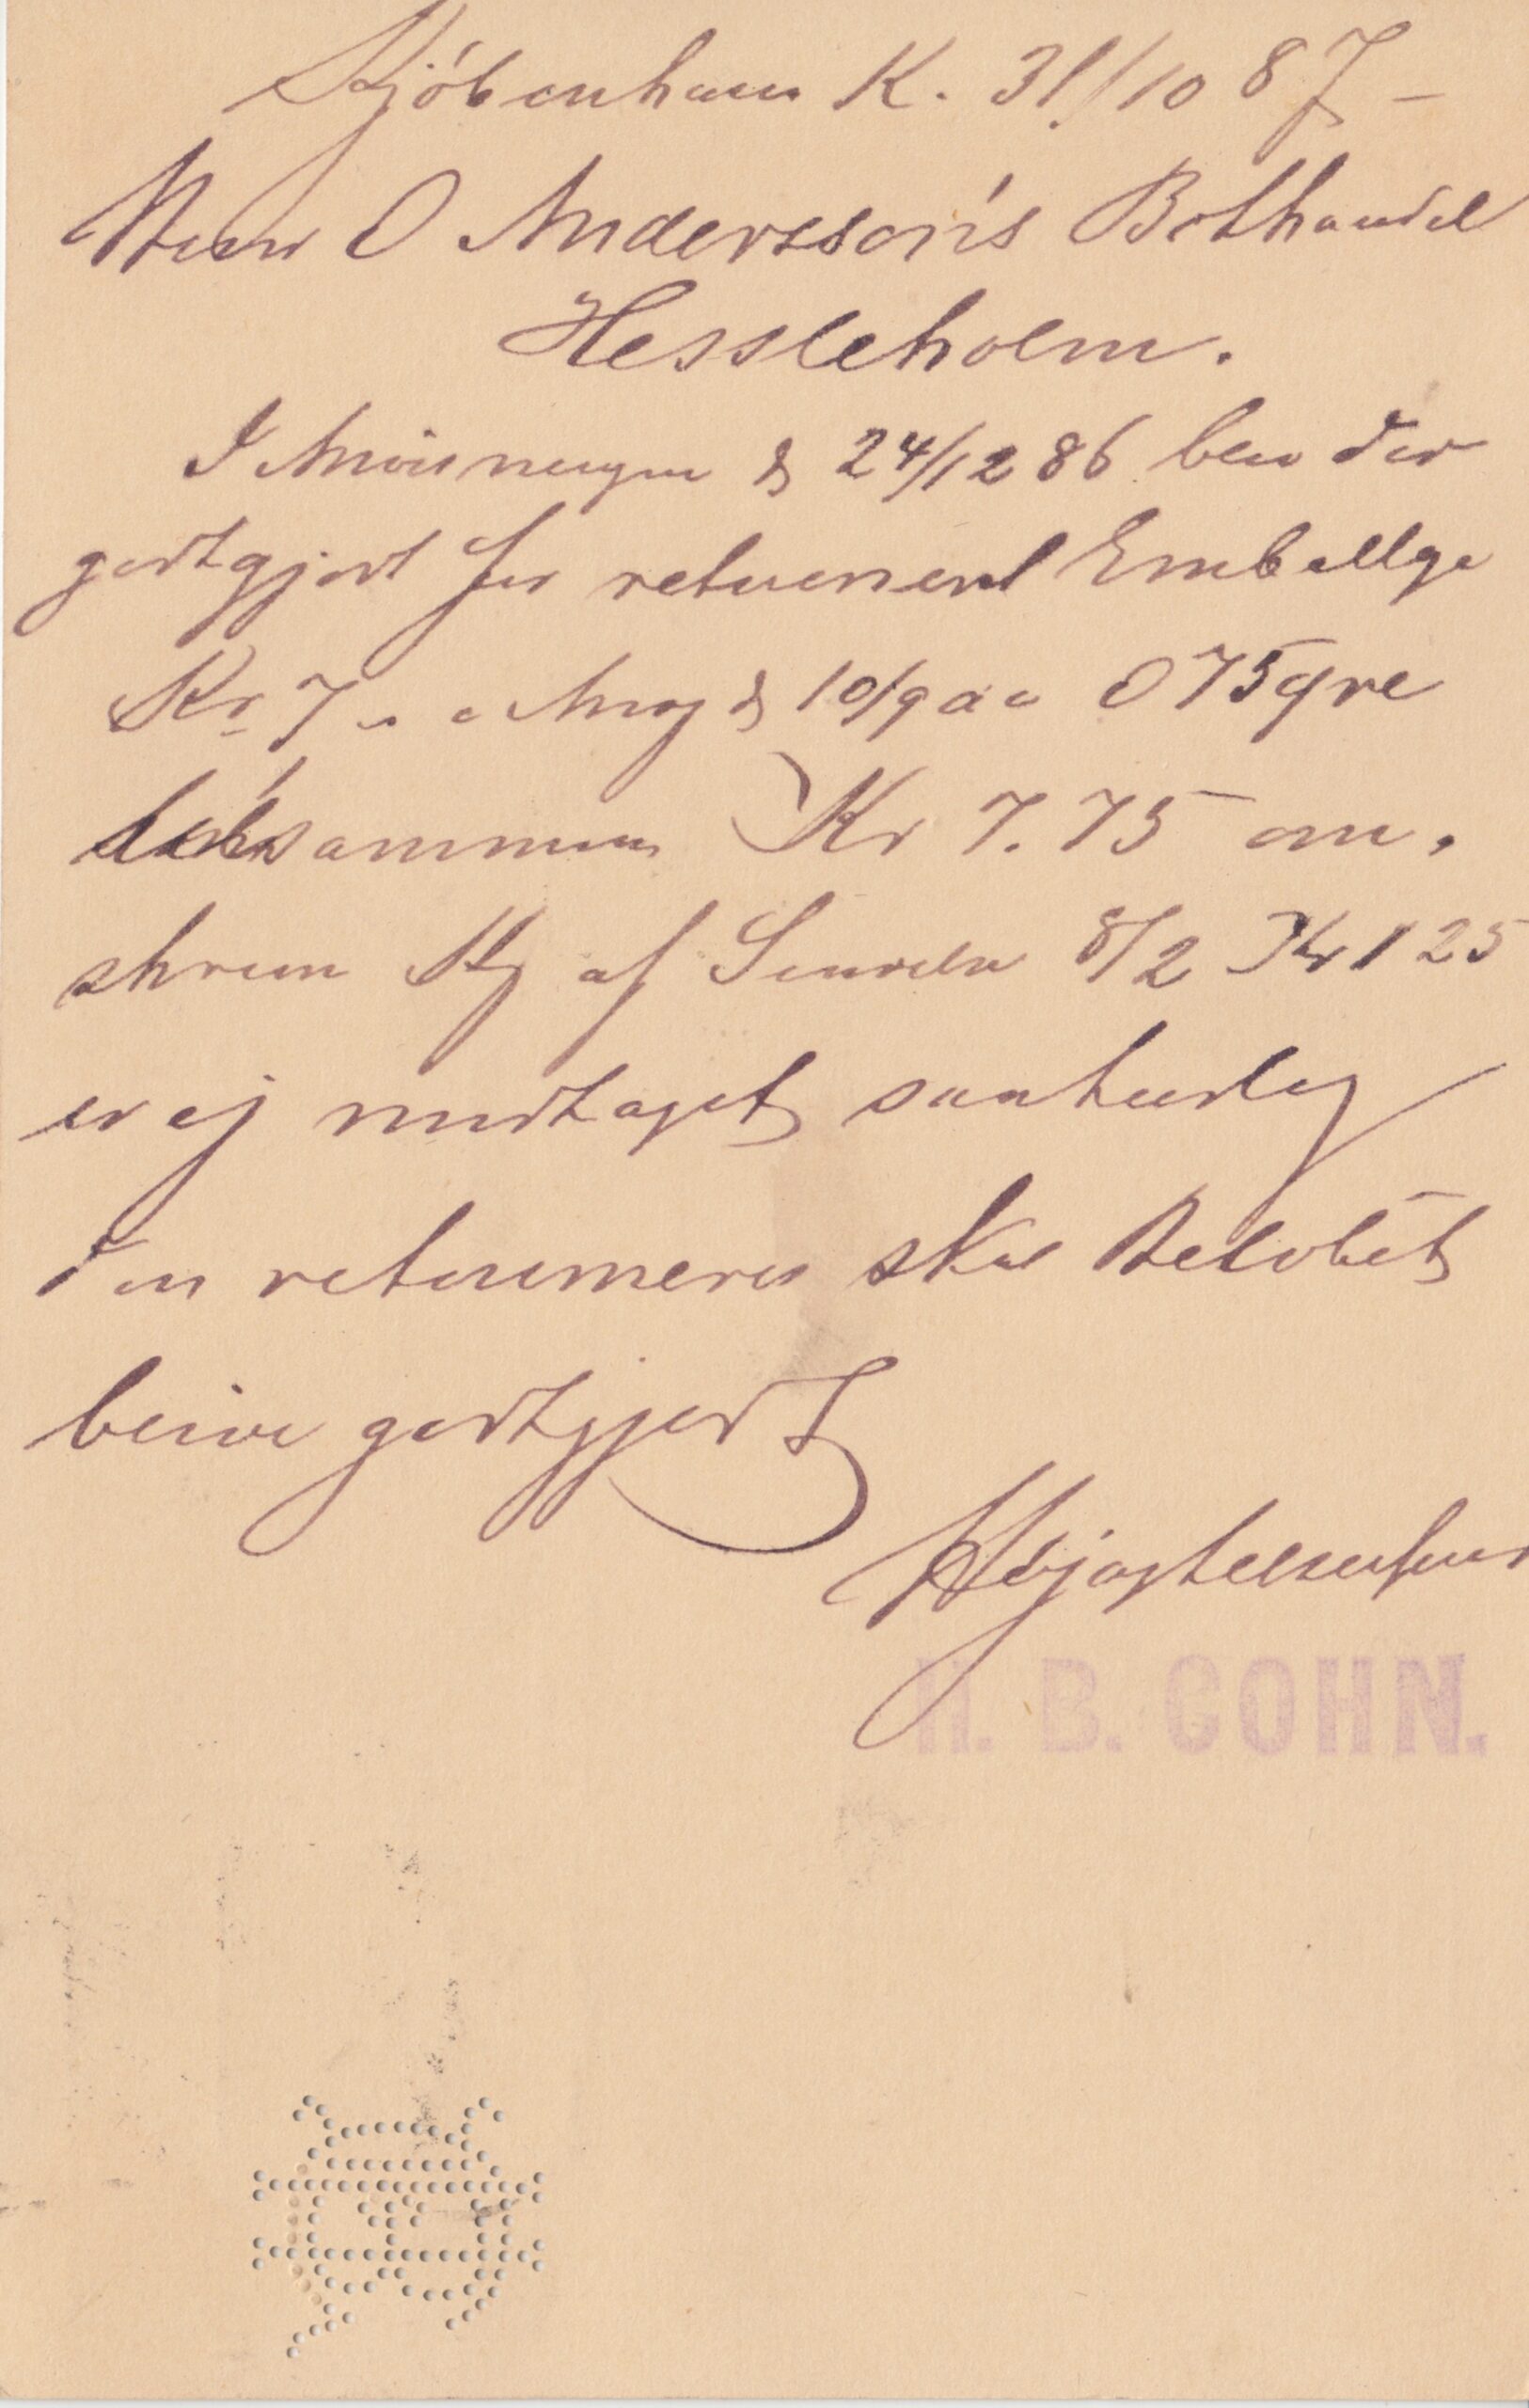 Kjöbenhavn K. 31/10 87 –
Herr O Andersson's Bokhandel
Hessleholm.
I Anvisningen d 24/12 86 blev der
godtgjort for returneret Emballage
Kr 7 10/9 a c 0 75 Øre
sammen Kr 7.75 om.
af Senderen 8/2 Kr 1 25
er ej modtaget
den retourneres skal Beløbet
blive godtgjort
Højagtelsesfuld
H. B. COHN.